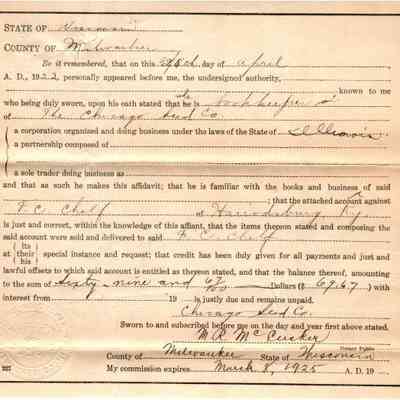 STATE OF Wisconsin
COUNTY OF Milwaukee
Be it remembered, that on this 28th day of April
A. D., 1922, personally appeared before me, the undersigned authority,
known to me
who being duly sworn, upon his oath stated that he is bookkeeper
of The Chicago Seed Co.
a corporation organized and doing business under the laws of the State of Illinois
a partnership composed of
a sole trader doing business as
and that as such he makes this affidavit; that he is familiar with the books and business of said
; that the attached account against
F. C. Chelf at Harrodsburg, Ky.
is just and correct, within the knowledge of this affiant, that the items thereon stated and composing the
said account were sold and delivered to said F. C. Chelf
at { its their his } special instance and request; that credit has been duly given for all payments and just and
lawful offsets to which said account is entitled as thereon stated, and that the balance thereof, amounting
to the sum of Sixty-nine and 67/100 Dollars ($ 69.67 ) with
interest from 19 is justly due and remains unpaid.
Chicago Seed Co.
Sworn to and subscribed before me on the day and year first above stated.
M. R. McCusker
Notary Public
County of Milwaukee State of Wisconsin
My commission expires March 8, 1925 A. D. 19